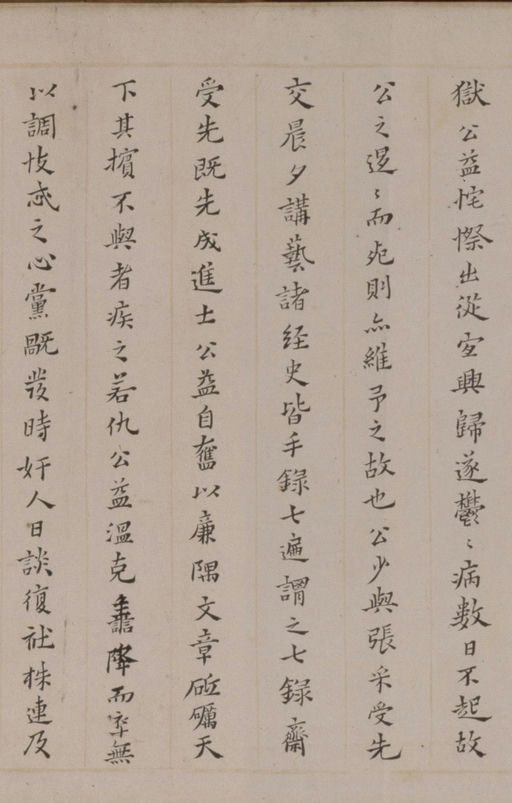 獄公益侘傺出從宜興歸遂鬱〻病數日不起故
公之逞〻而死則亦維予之故也公少與張采受先
交晨夕講藝諸経史皆手錄七遍謂之七錄齋
受先既先成進士公益自奮以廉隅文章砥礪天
下其擯不與者疾之若仇公益溫克謙降而率無
以調忮忒之心黨既發時奸人日談復社株連及